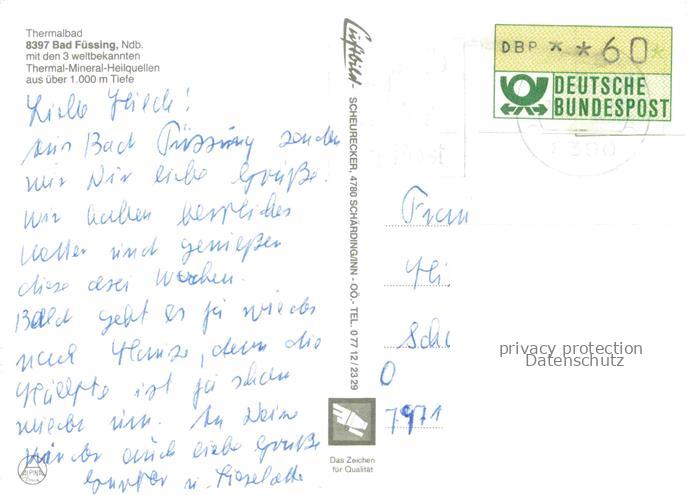 Thermalbad
8397 Bad Füssing, Ndb.
mit den 3 weltbekannten
Thermal-Mineral-Heilquellen
aus über 1.000 m Tiefe
Liebe
aus Bad Füssing senden
wir Dir liebe Grüße.
Wir haben herrliches
Wetter und genießen
diese drei Wochen.
Bald geht es ja wieder
nach Hause, denn die
Hälfte ist ja schon
wieder um. An Deine
Kinder auch liebe Grüße
Gunter u. Liselotte
Luftbild - SCHEURECKER, 4780 SCHÄRDING/INN - OÖ. - TEL. 0 77 12 / 23 29
Das Zeichen
für Qualität
DBP * *60*
DEUTSCHE
BUNDESPOST
8390
Frau
Hi
Sch
O
7971
privacy protection
Datenschutz